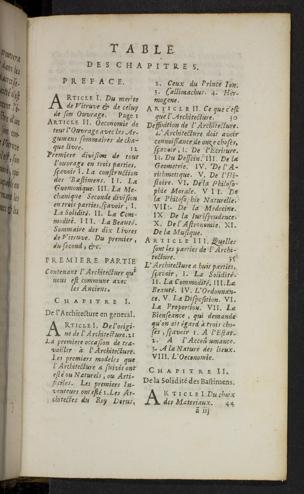 TABLE
DES CHAPITRES.
PREFACE.
ARTICLE I. Du merite
de Vitruve & de celuy
de son Ouvrage. Page 1
ARTICLE II. Oeconomie de
tout l'Ouvrage avec les Ar-
gumens sommaires de cha-
que livre. 12
Premiere division de tout
l'ouvrage en trois parties,
sçavoir I. La construction
des Bastimens. II. La
Gnomonique III. La Me-
chanique Seconde division
en trois parties, sçavoir I.
La Solidité. II. La Com-
modité. III. La Beauté.
Sommaire des dix Livres
de Vitruve. Du premier,
du second, &c.
PREMIERE PARTIE
Contenant l'Architecture qui
nous est commune avec
les Anciens.
CHAPITRE I.
De l'Architecture en general.
ARTICLE I. De l'origi-
ne de l'Architecture. 21
La premiere occasion de tra-
vailler à l'Architecture.
Les premiers modeles que
l'Architecture a suivis ont
esté ou Naturels, ou Arti-
ficiels. Les premiers In-
venteurs ont esté 1. Les Ar-
chitectes du Roy Dorus,
2. Ceux du Prince Ion.
3. Callimachus. 4. Her-
mogene.
ARTICLE II. Ce que c'est
que l'Architecture. 30
Deffinition de l'Architecture.
L'Architecture doit avoir
connoissance de onze choses,
sçavoir, I. De l'Ecriture.
II. Du Dessein. III. De la
Geometrie. IV. De l'A-
rithmetique. V. De l'Hi-
stoire. VI. De la Philoso-
phie Morale. VII. De
la Philosophie Naturelle.
VIII. De la Medecine.
IX De la Jurisprudence.
X. De l'Astronomie. XI.
De la Musique.
ARTICLE III. Quelles
sont les parties de l'Archi-
tecture. 35
L'Architecture a huit parties,
sçavoir, I. La Solidité.
II. La Commodité, III. La
Beauté. IV. L'Ordonnan-
ce. V. La Disposition. VI.
La Proportion. VII. La
Bienseance, qui demande
qu'on ait égard à trois cho-
ses, sçavoir 1. A l'Estat.
2. A l'Accoûtumance.
3. A la Nature des lieux.
VIII. L'Oeconomie.
CHAPITRE II.
De la Solidité des Bastimens.
ARTICLE I. Du choix
des Materiaux. 44
ã iij